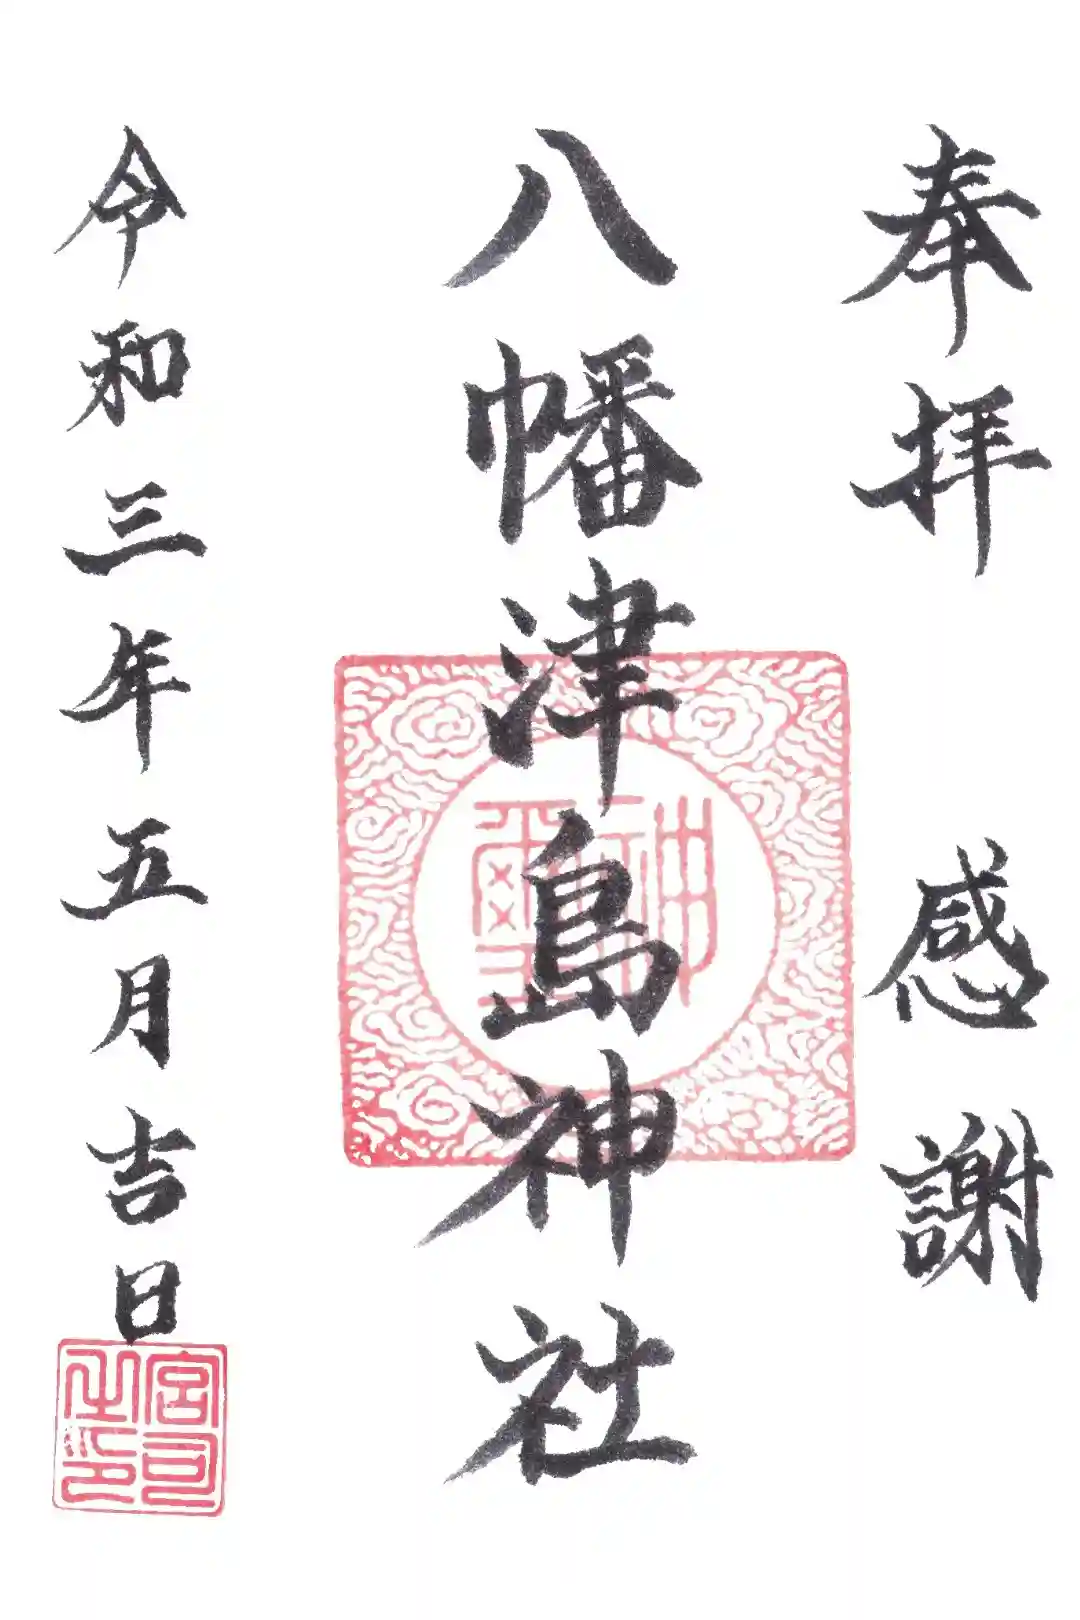 奉拝 感謝
八幡津島神社
神璽
令和三年五月吉日
宮司之印